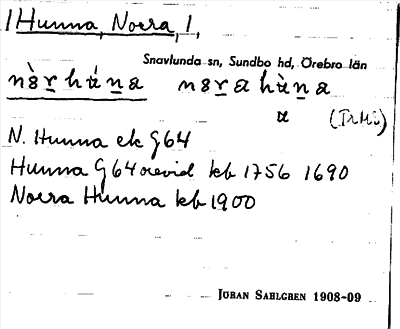 Hunna, Norra, 1,
Snavlunda sn, Sundbo hd, Örebro län
N. Hunna ek G64
Hunna G64 orevid kb 1756 1690
Norra Hunna kb 1900
JÖRAN SAHLGREN 1908-09